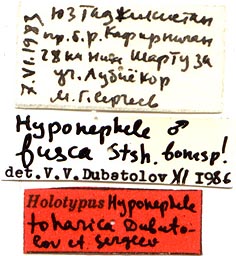 ЮЗ Таджикистан
пр. б. р. Кафирниган
28 км ниже Шартуза
М. Г. Сергеев
Hyponephele ♂
fusca Stsh. bonasp!
det. V. V. Dubatolov XI 1986
Holotypus Hyponephele
toharica Dubato-
lov et Sergeev